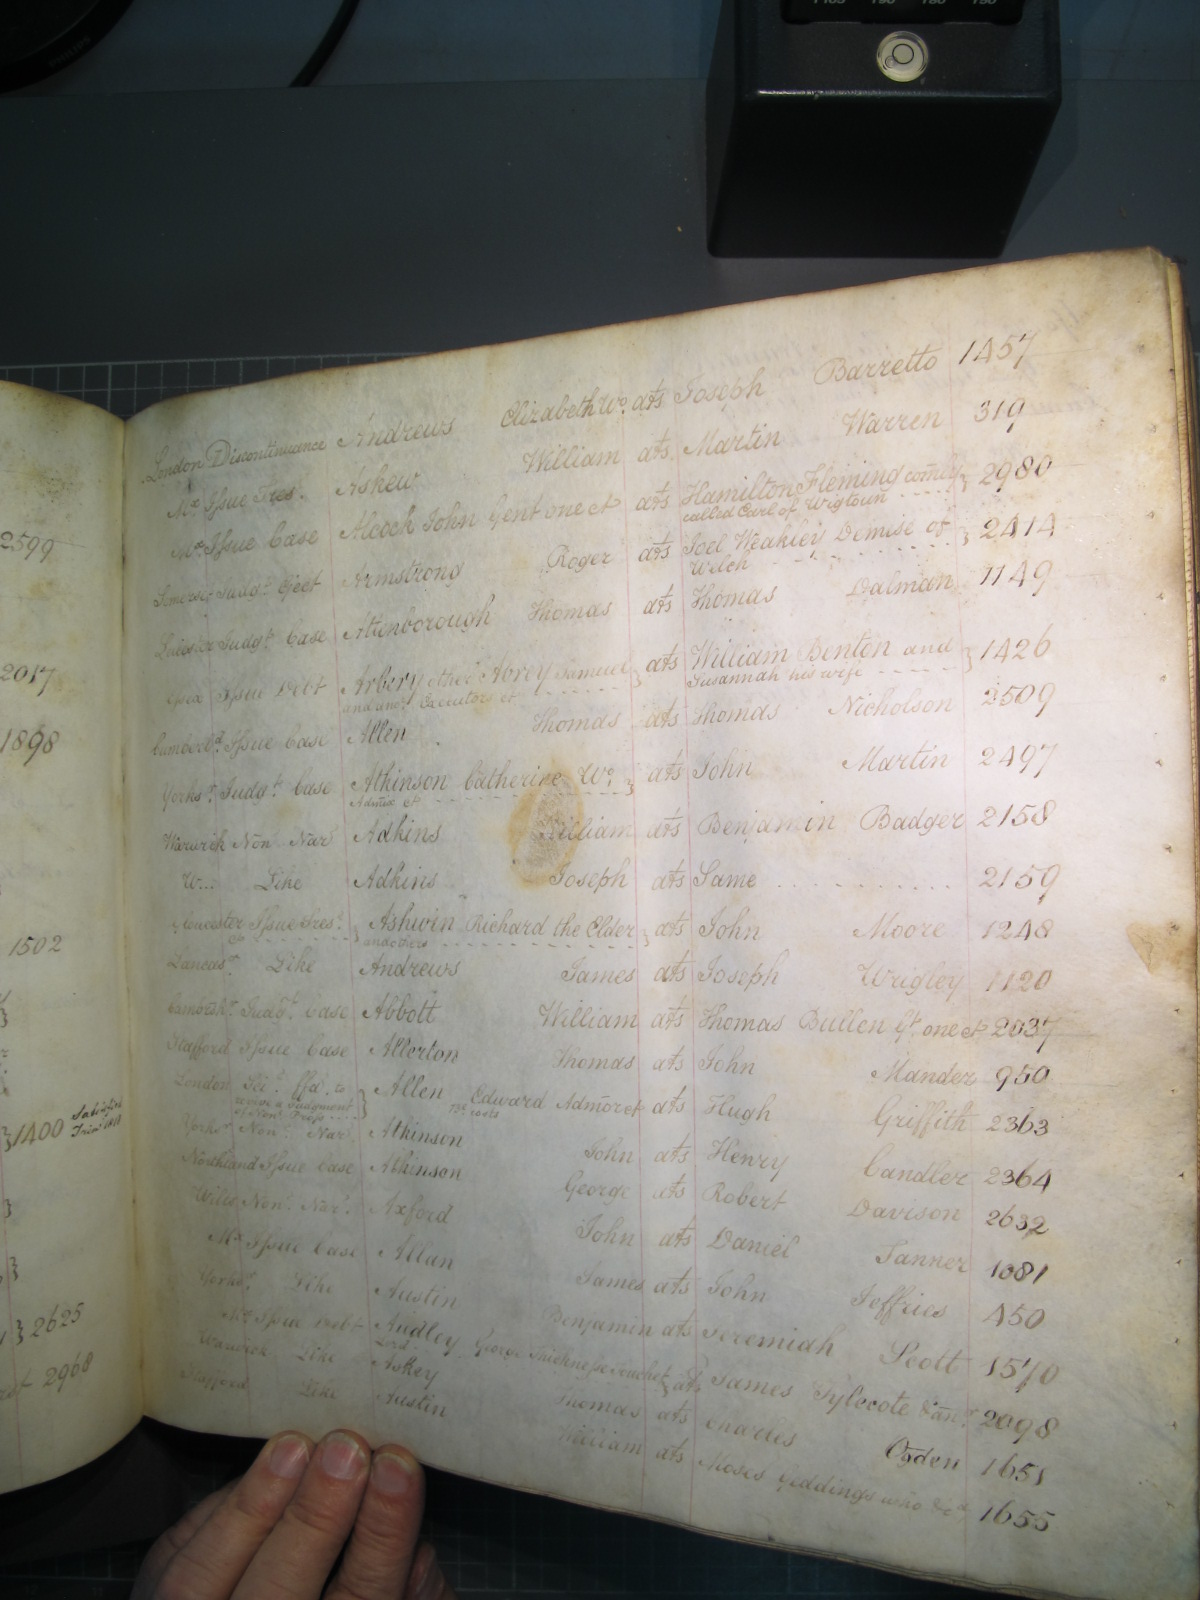 PHILIPS
London Discontinuance Andrews Elizabeth Wo. ats Joseph Barretto 1457
Mx. Issue Tres. Askew William ats Martin Warren 319
Mx. Issue Case Alcock John Gent one &c ats Hamilton Fleming comly } 2980
called Earl of Wigtoun
Somerset Judgt. Eject Armstrong Roger ats Joel Weakley Demise of } 2414
Welch
Leicester Judgt. Case Attenborough Thomas ats Thomas Dalman 1149
Essex Issue Debt Arbery otherw Abrey Samuel } ats William Benton and } 1426
and anor. Executors &c Susannah his wife
Cumberld. Issue Case Allen Thomas ats Thomas Nicholson 2509
Yorks. Judgt. Case Atkinson Catherine Wo. } ats John Martin 2497
Admix &c
Warwick Non Nar Adkins William ats Benjamin Badger 2158
W... Like Adkins Joseph ats Same 2159
Gloucester Issue Tres. } Ashwin Richard the Elder } ats John Moore 1248
&c and others
Lancasr. Like Andrews James ats Joseph Wrigley 1120
Judgt. Case Abbott William ats Thomas Bullen Gt. one &c 2037
Stafford Issue Case Allerton Thomas ats John Mander 950
London Sci. ffa. to } Allen Edward Admor &c ats Hugh Griffith 2363
revive a Judgment
of Non Pros costs
Yorks. Non. Nar. Atkinson John ats Henry Candler 2364
Northland Issue Case Atkinson George ats Robert Davison 2632
Wilts Non. Nar. Axford John ats Daniel Tanner 1081
Mx. Issue Case Allan James ats John Jeffries 450
Yorks. Like Austin Benjamin ats Jeremiah Scott 1570
Mx. Issue Debt Audley George Thicknesse Touchet } ats James Tylecote 2098
Lord
Warwick Like Askey Thomas ats Charles Ogden 1651
Stafford Like Austin William ats Moses Giddings who &c 1655
2599
2017
1898
1502
} 1400
} 2625
2968